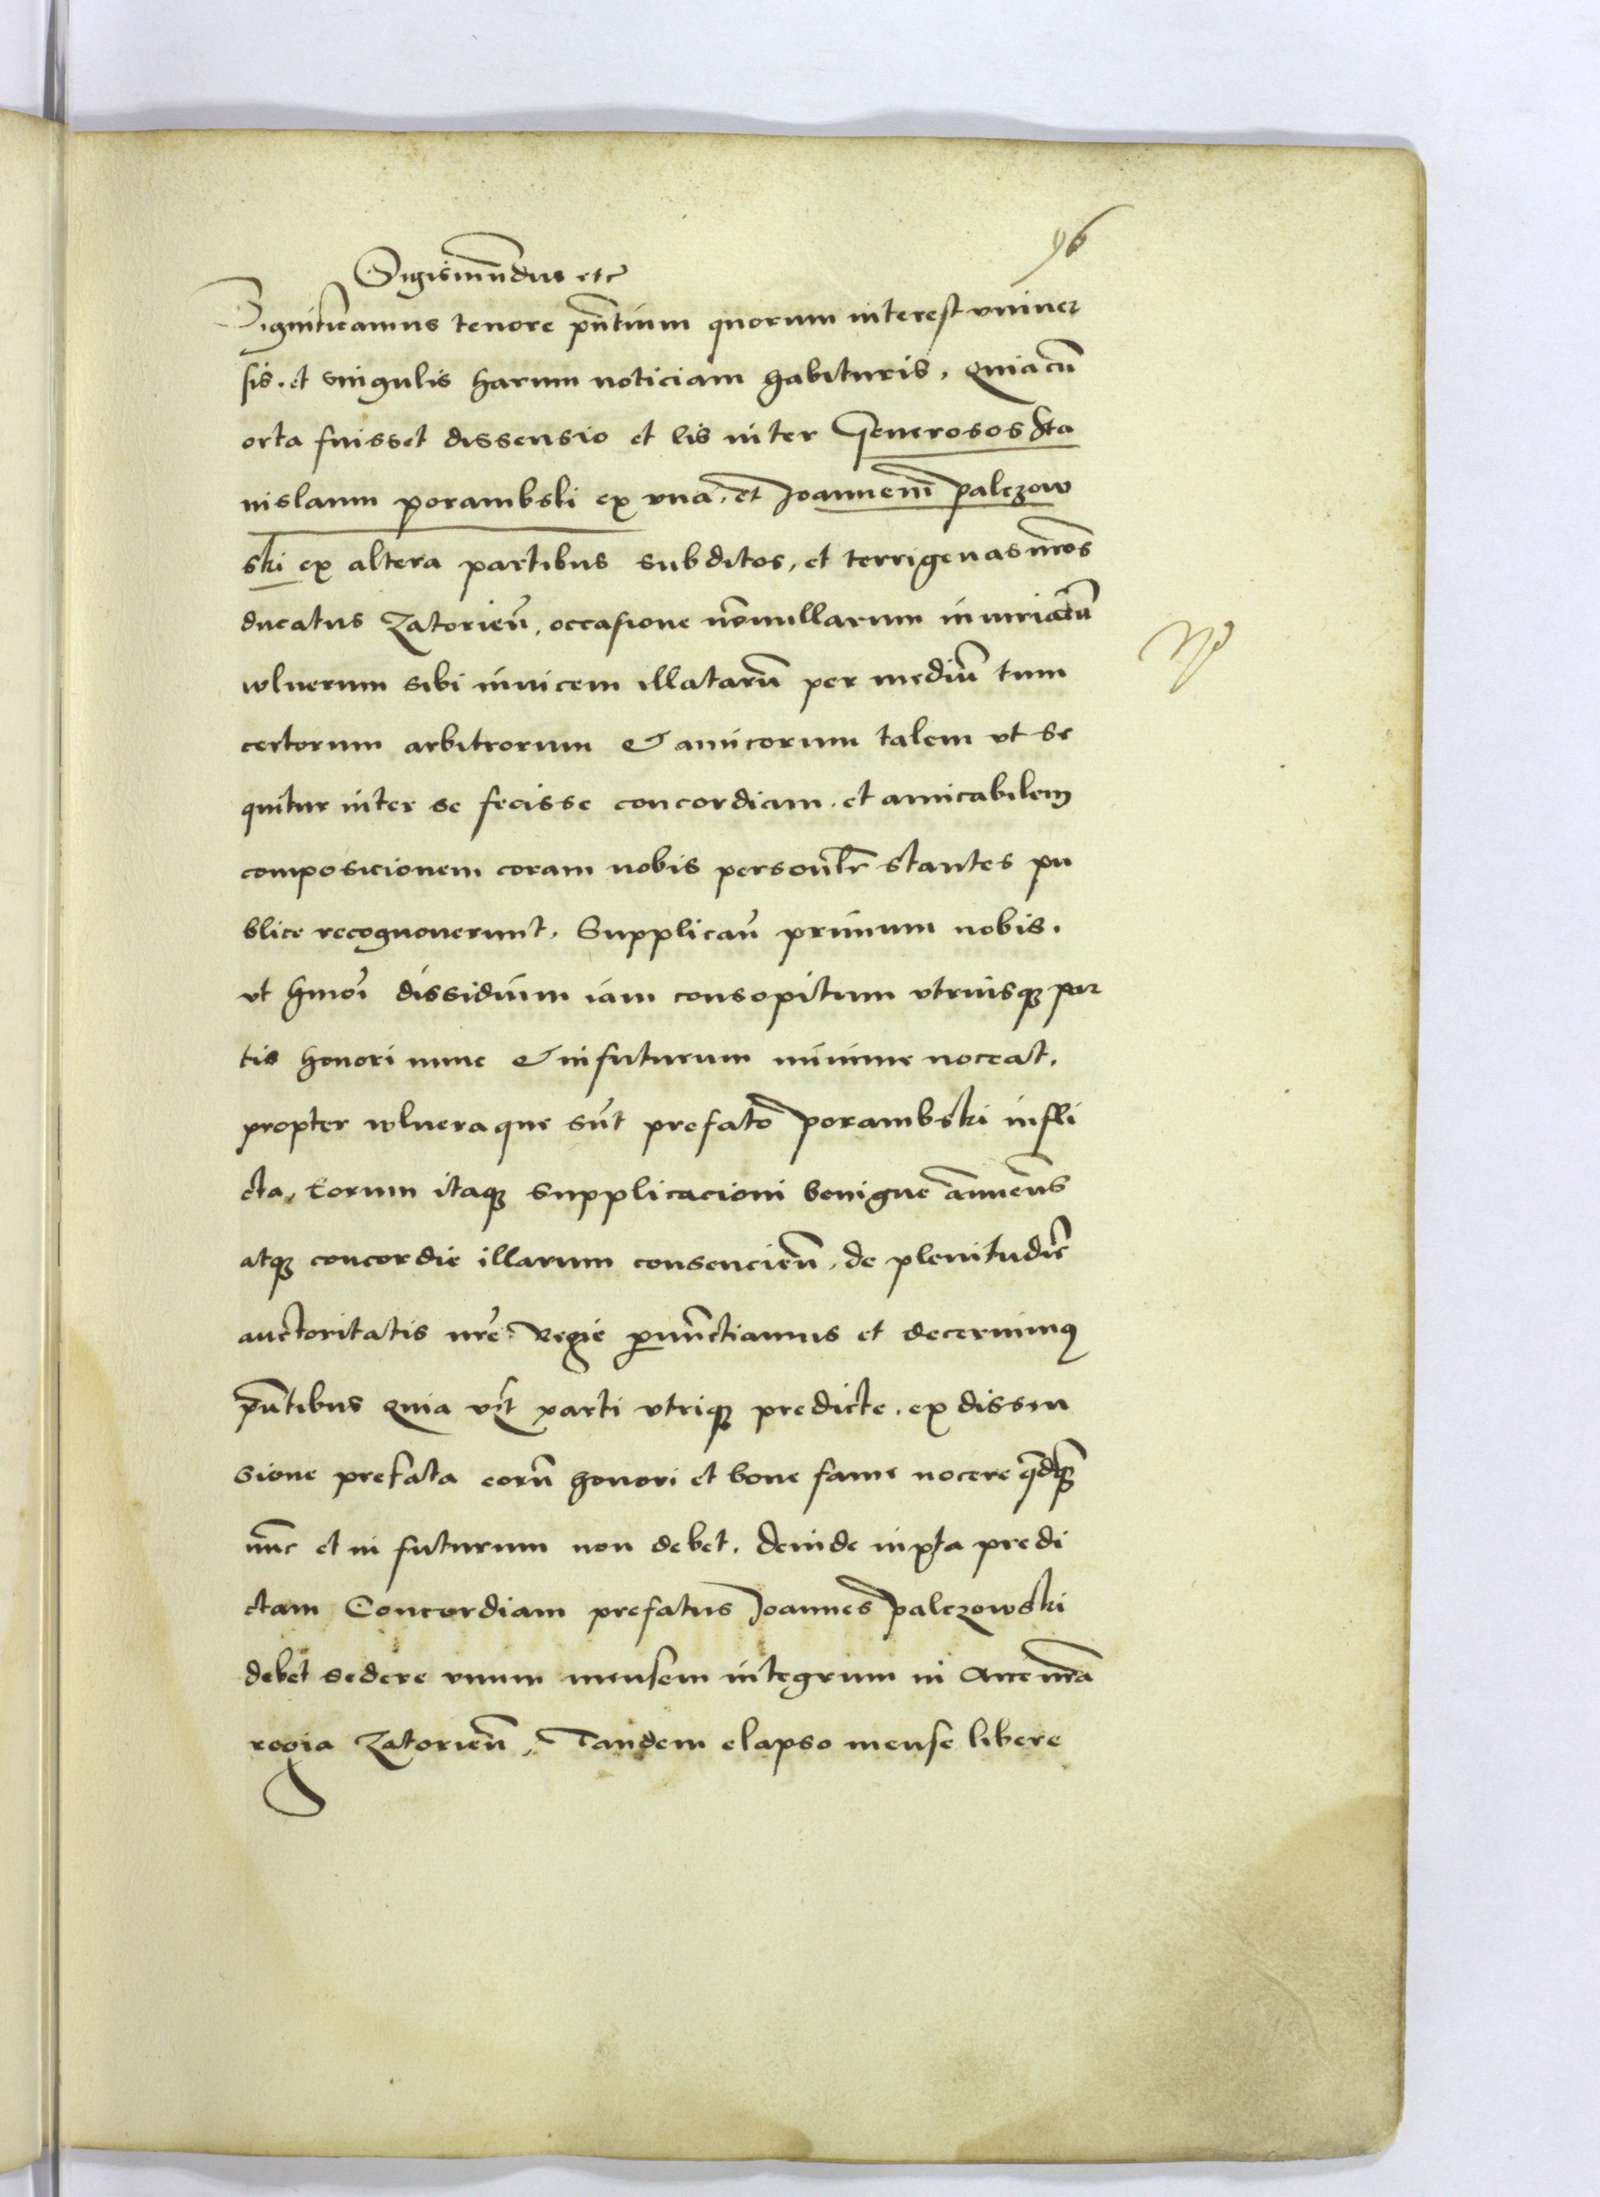 96
Sigismūdus etc
Significamus tenore pn̄tium quorum interest vniuer
sis. et singulis harum noticiam habituris, Quia cū
orta fuisset dissensio et lis inter Generosos Sta
nislaum porambski ex vna, et Joannem palczow
ski ex altera partibus subditos, et terrigenas nr̄os
ducatus Zatorien̄, occasione nōnullarum iniuriarū
wlnerum sibi inuicem illatarū per mediū tum
certorum arbitrorum & amicorum talem vt se
quitur inter se fecisse concordiam. et amicabilem
composicionem coram nobis personl̄r stantes pu
blice recognouerunt, Supplican̄ primum nobis.
vt hmōi dissidium iam consopitum vtriusq̢ par
tis honori nunc & in futurum minime noceat,
propter wlnera que sūt prefato porambski infli
cta, Eorum itaq̢ supplicacioni benigne ānuen̄s
atq̢ concordie illarum consencien̄, de plenitudīe
auctoritatis nr̄e Regie ꝓnūctiamus et decernimꝰ
pn̄tibus Quia parti vtriq̢ predicte, ex dissen
sione prefata eorū honori et bone fame nocere
nūc et in futurum non debet, deinde iuxta predi
ctam Concordiam prefatus Joannes palczowski
debet sedere vnum mensem integrum in Arce nr̄a
regia Zatorien̄, Tandem elapso mense libere